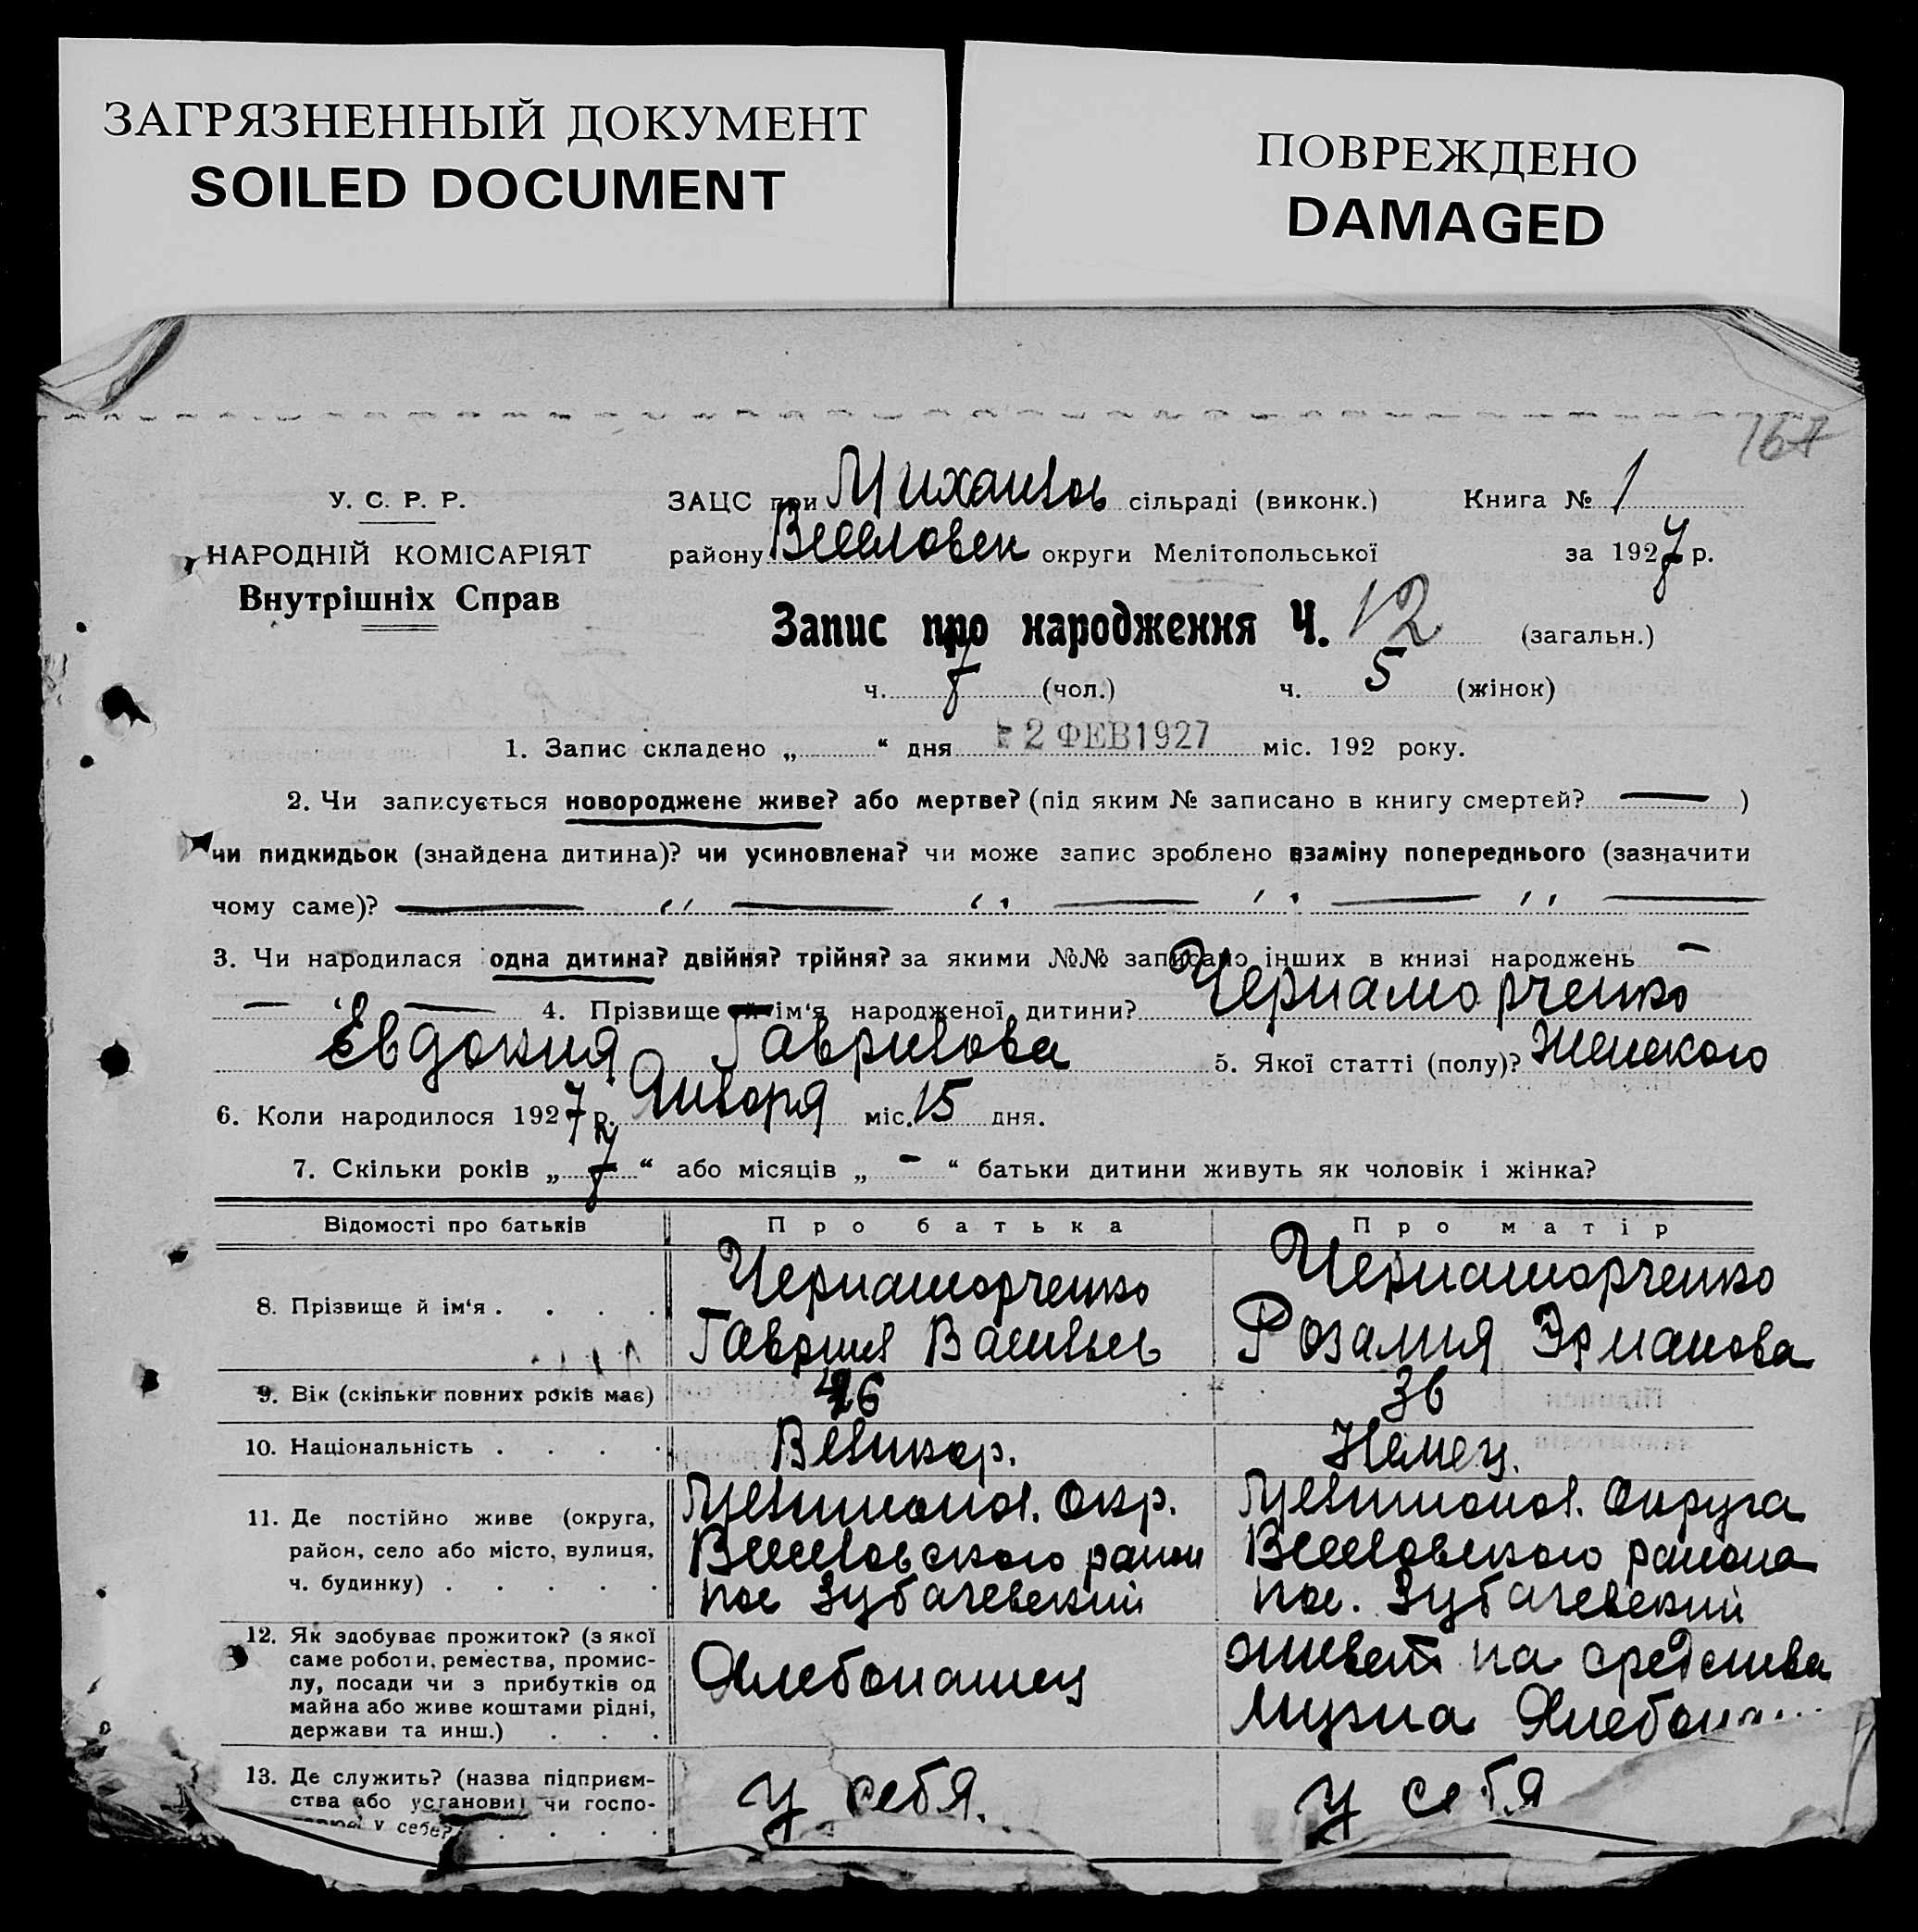 ЗАГРЯЗНЕННЫЙ ДОКУМЕНТ
SOILED DOCUMENT
ПОВРЕЖДЕНО
DAMAGED
167
У. С. Р. Р.
НАРОДНІЙ КОМІСАРІЯТ
Внутрішніх Справ
ЗАЦС при Михайлов сільраді (виконк.) Книга № 1
району Веселовск округи Мелітопольської за 1927 р.
Запис про народження Ч. 12 (загальн.)
ч. 7 (чол.) ч. 5 (жінок)
1. Запис складено „ “ дня 2 ФЕВ 1927 міс. 192 року.
2. Чи записується новороджене живе? або мертве? (під яким № записано в книгу смертей? — )
чи пидкидьок (знайдена дитина)? чи усиновлена? чи може запис зроблено взаміну попереднього (зазначити
чому саме)? — „ — „ — „ — „ —
3. Чи народилася одна дитина? двійня? трійня? за якими №№ записано інших в книзі народжень —
— „ — 4. Прізвище й ім‘я народженої дитини? Чернаморченко
Евдокия Гаврилова 5. Якої статті (полу)? Женского
6. Коли народилося 1927 р. Января міс. 15 дня.
7. Скільки років „ 7 “ або місяців „ - “ батьки дитини живуть як чоловік і жінка?
Відомості про батьків Про батька Про матір
8. Прізвище й ім‘я . . . . Чернаморченко Чернаморченко
Гаврил Васильев Розалия Эрманова
9. Вік (скільки повних років має) 46 36
10. Національність . . . . Великор. Немец.
11. Де постійно живе (округа, Мелитопол. Окр. Мелитопол. Округа
район, село або місто, вулиця, Веселовского район Веселовского района
ч. будинку) . . . . . пос Зубачевский пос. Зубачевский
12. Як здобуває прожиток? (з якої
саме роботи, ремества, промис-
лу, посади чи з прибутків од
майна або живе коштами рідні,
держави та инш.) . . .
Хлебопашец
живет на средства
мужа
13. Де служить? (назва підприєм-
ства або установи чи госпо-
у себе? . . . .
у себя.
у себя